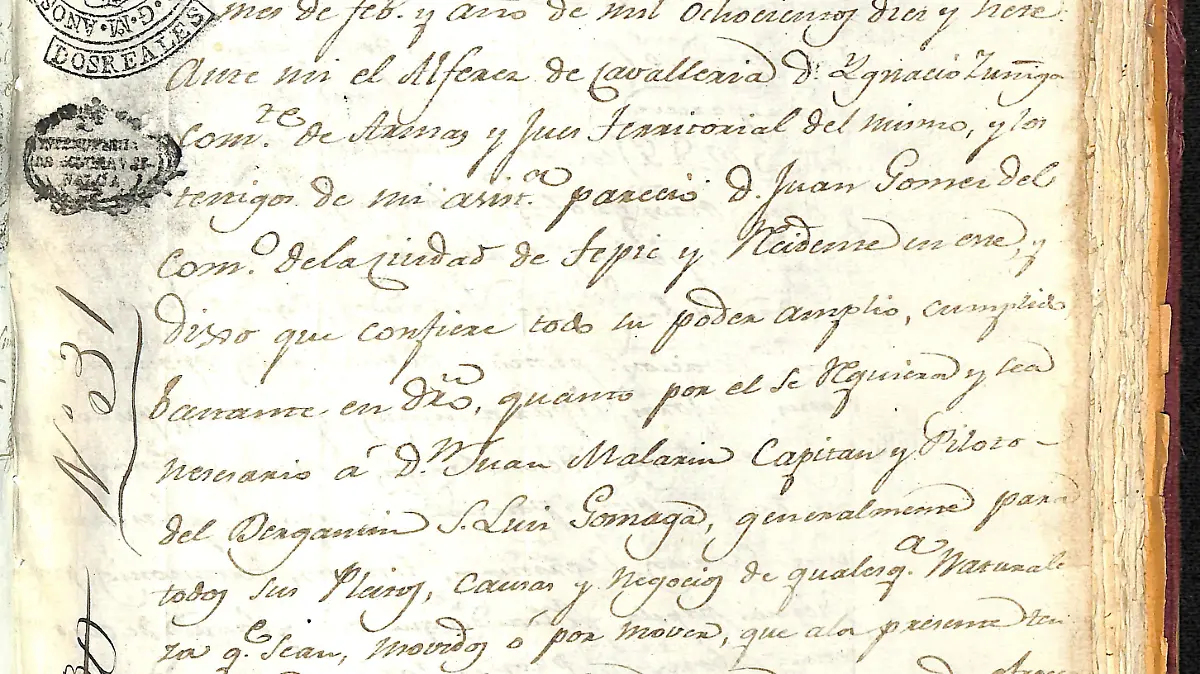 DOSREALES
mes de feb.º y año de mil ochocientos diez y siete
Ante mi el Alferez de Cavalleria D.n Ygnacio Zuñiga
Com.te de Armas y Jues Territorial del mismo, y los
testigos de mi asist.a parecio D. Juan Gomes del
Com.o dela Ciudad de Tepic y Recidente en este, y
Dixo que confiere todo su poder amplio, cumplido
bastante en dro, quanto por el se requiera y sea
nesesario á D.n Juan Malarin Capitan y Piloto -
del Bergantin S. Luis Gonzaga, generalmente para
todos sus Pleitos, causas y Negocios de qualesq.a Naturale
za q.e sean, movidos ó por mover, que ala presente ten
Nº 31